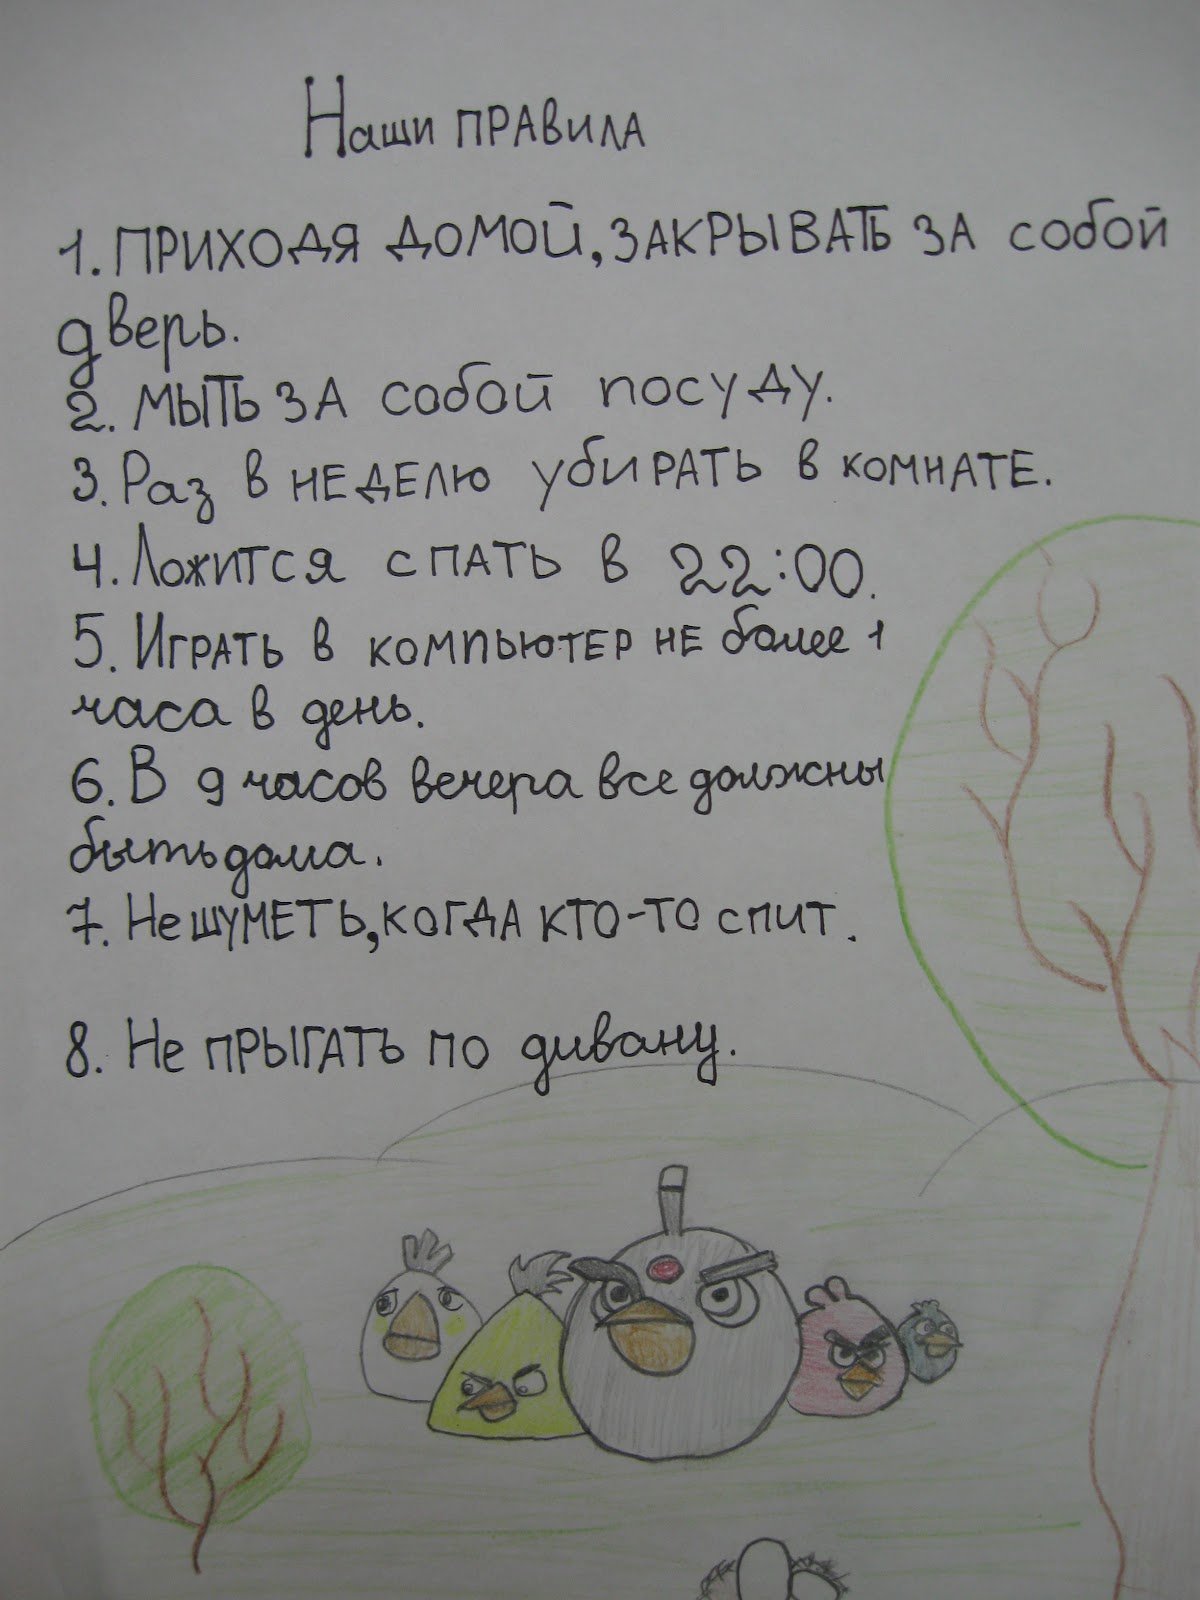 Наши ПРАВИЛА
1. ПРИХОДЯ ДОМОЙ, ЗАКРЫВАТЬ ЗА собой
дверь.
2. МЫТЬ ЗА собой посуду.
3. Раз в НЕДЕЛЮ убирать в комнате.
4. Ложится спать в 22:00.
5. Играть в компьютер не более 1
часа в день.
6. В 9 часов вечера все должны
быть дома.
7. Не шуметь, когда кто-то спит.
8. Не прыгать по дивану.